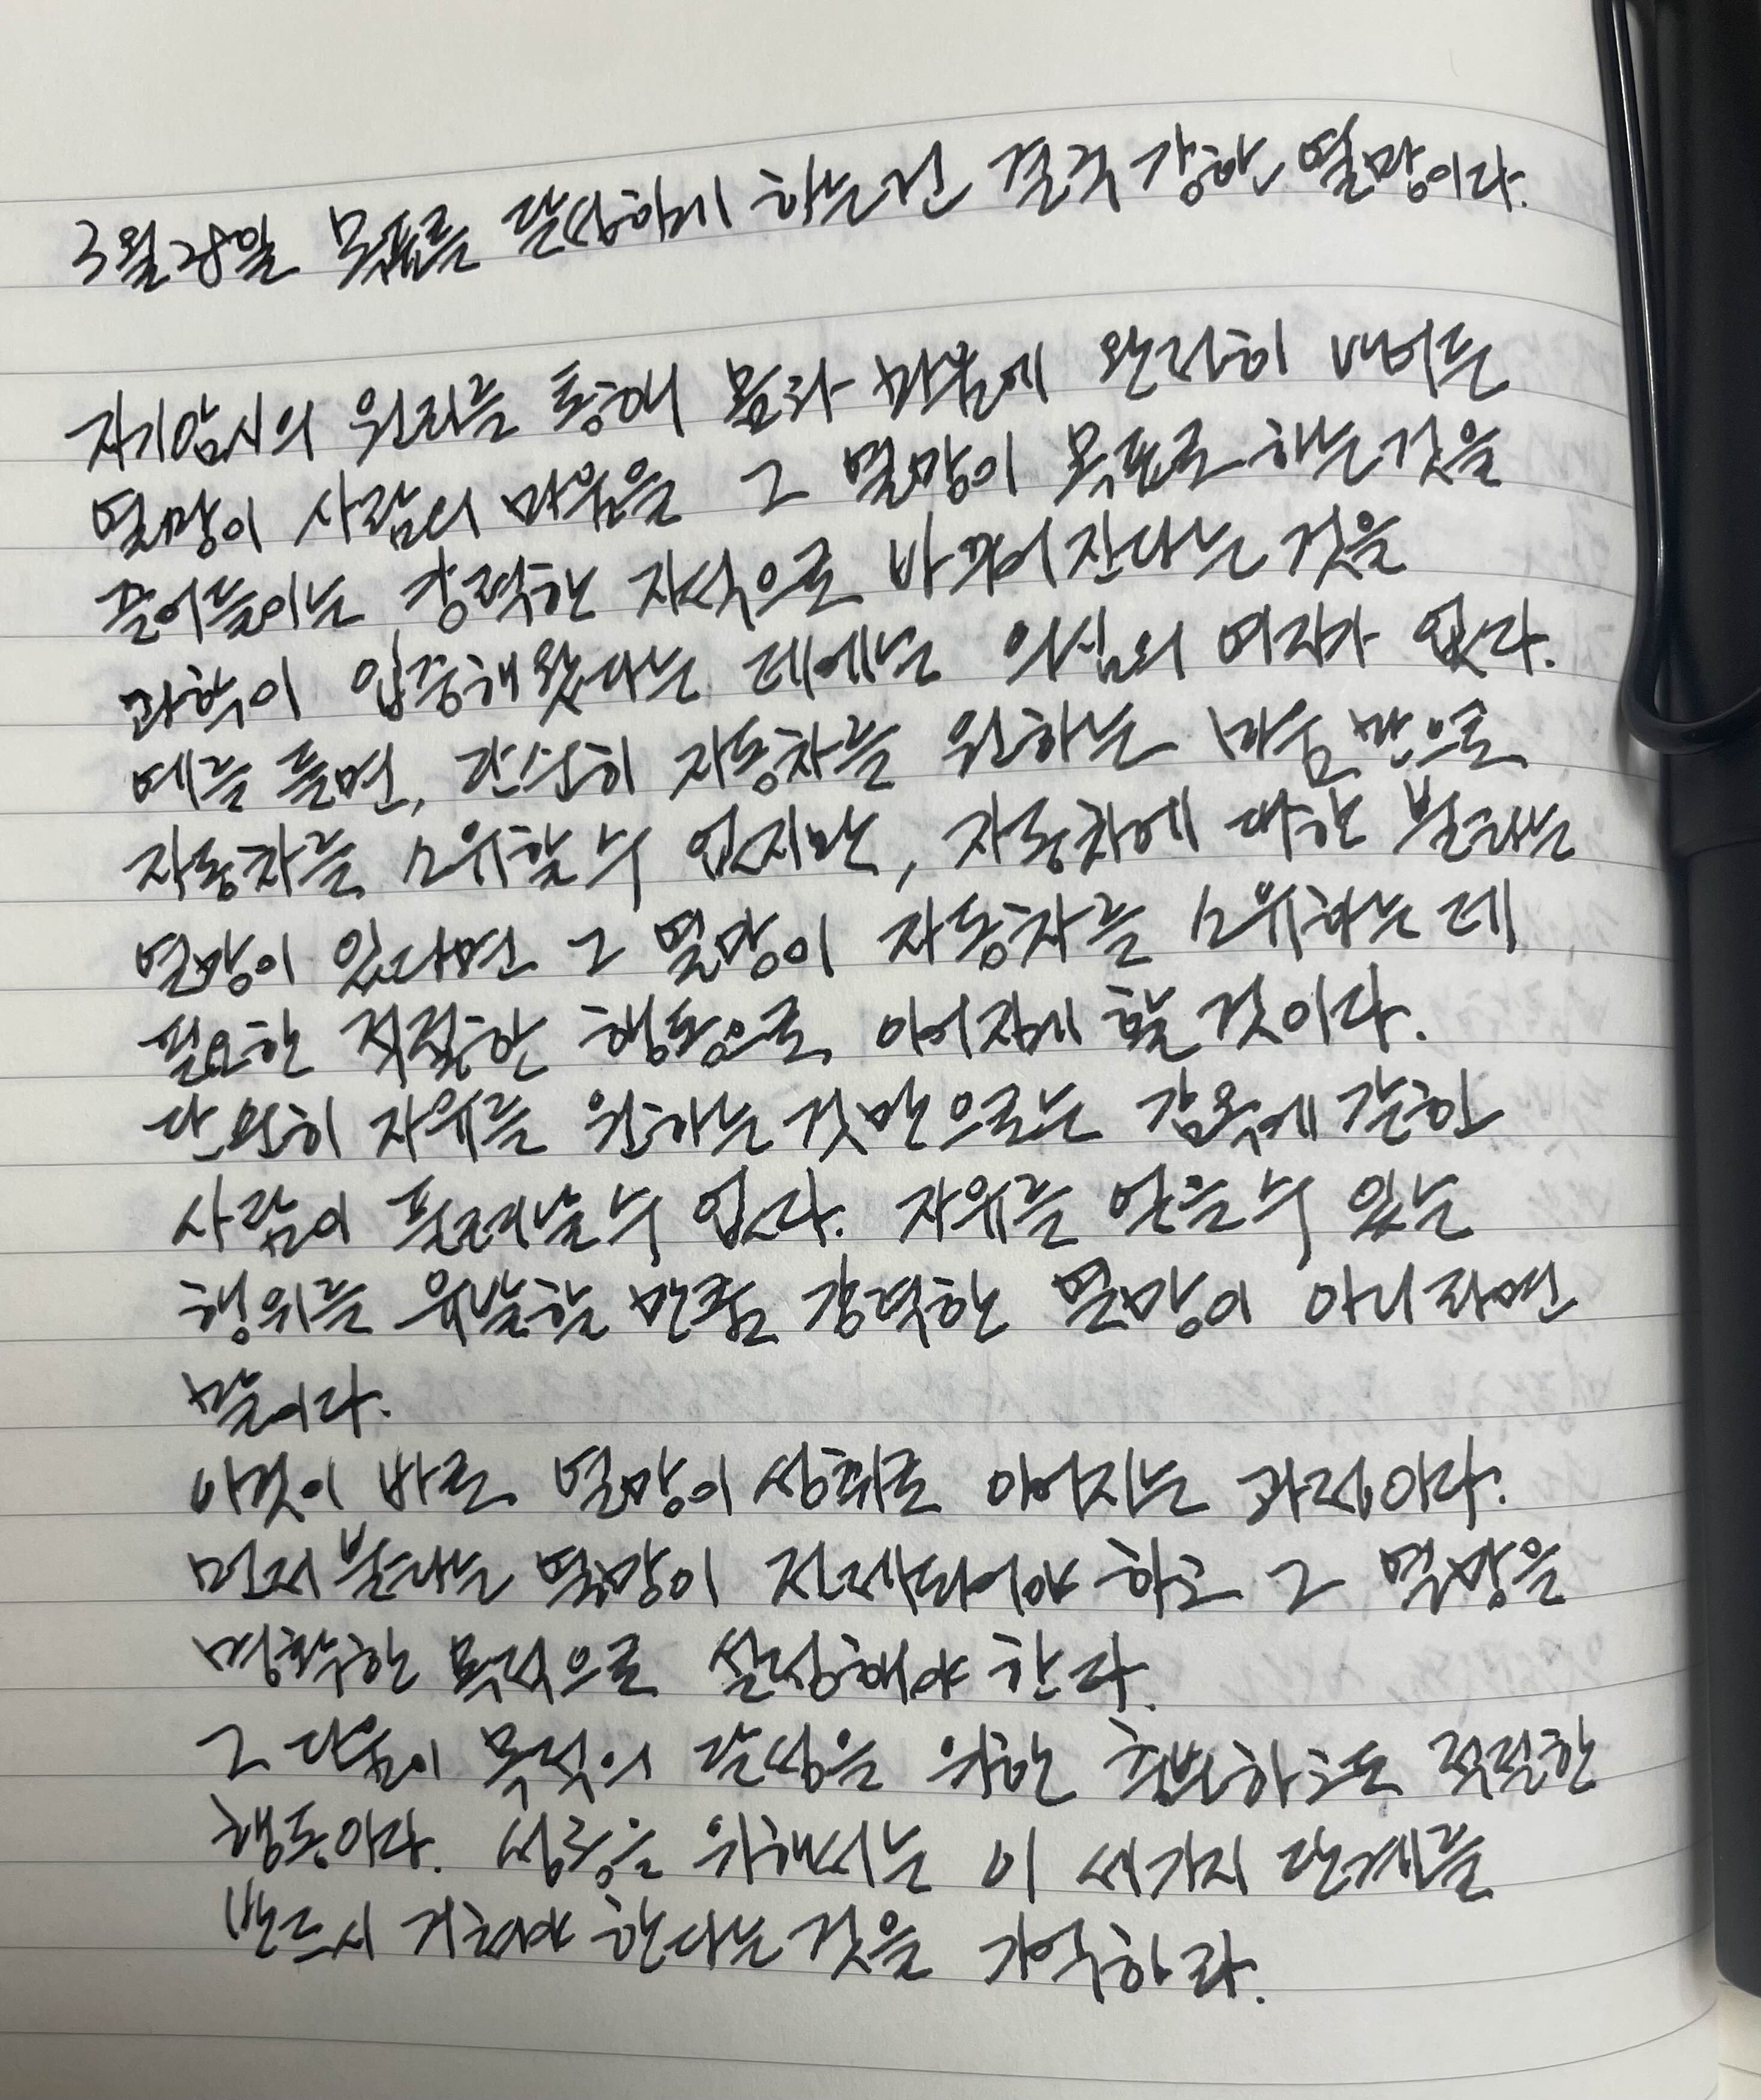 3월28일 목표를 달성하게 하는건 결국 강한 열망이다.
자기암시의 원리를 통해 몸과 마음에 완전히 배어든
열망이 사람의 마음을 그 열망이 목표로 하는것을
끌어들이는 강력한 자석으로 바뀌어진다는 것을
과학이 입증해왔다는 데에는 의심의 여지가 없다.
예를 들면, 단순히 자동차를 원하는 마음만으로
자동차를 소유할 수 없지만, 자동차에 대한 불타는
열망이 있다면 그 열망이 자동차를 소유하는 데
필요한 적절한 행동으로 이어지게 할 것이다.
단순히 자유를 원하는 것만으로는 감옥에 갇힌
사람이 풀려날 수 없다. 자유를 얻을 수 있는
행위를 유발할 만큼 강력한 열망이 아니라면
말이다.
이것이 바로 열망이 성취로 이어지는 과정이다.
먼저 불타는 열망이 전제되어야 하고 그 열망을
명확한 목적으로 설정해야 한다.
그 다음이 목적의 달성을 위한 충분하고도 적절한
행동이다. 성공을 위해서는 이 세가지 단계를
반드시 거쳐야 한다는 것을 기억하라.